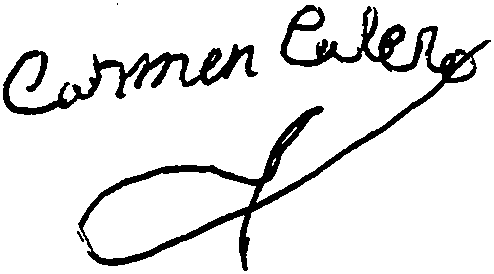 Carmen Calero